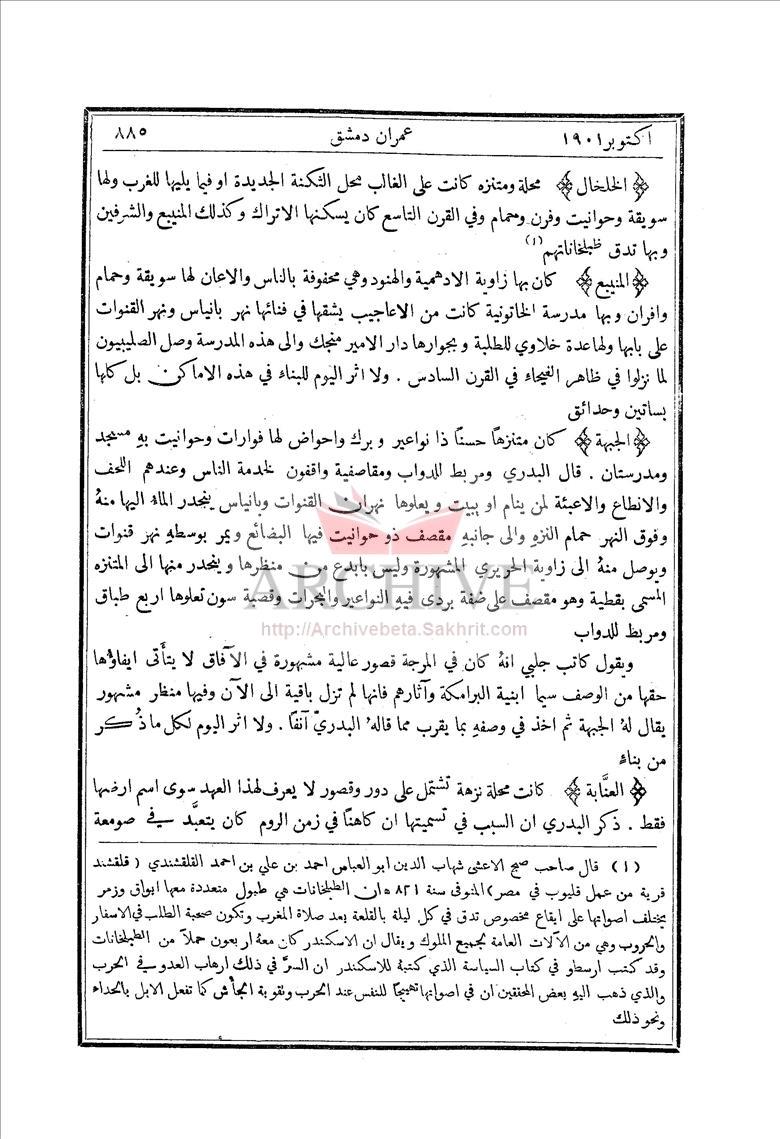 اكتوبر ١٩٠١ عمران دمشق ٨٨٥
﴿الخلخال﴾ محلة ومتنزه كانت على الغالب محل الثكنة الجديدة او فيما يليها للغرب ولها
سويقة وحوانيت وفرن وحمام وفي القرن التاسع كان يسكنها الاتراك وكذلك المنيبع والشرفين
وبها تدق طبلخاناتهم (١)
﴿المنيبع﴾ كان بها زاوية الادهمية والهنود وهي محفوفة بالناس والاعان لها سويقة وحمام
وافران وبها مدرسة الخاتونية كانت من الاعاجيب يشقها في فنائها نهر بانياس ونهر القنوات
على بابها ولها عدة خلاوي للطلبة وبجوارها دار الامير منجك والى هذه المدرسة وصل الصليبيون
لما نزلوا في ظاهر الفيحاء في القرن السادس . ولا اثر اليوم للبناء في هذه الاماكن بل كلها
بساتين وحدائق
﴿الجبهة﴾ كان متنزهاً حسناً ذا نواعير وبرك واحواض لها فوارات وحوانيت به مسجد
ومدرستان . قال البدري ومربط للدواب ومقاصفية واقفون لخدمة الناس وعندهم اللحف
والانطاع والاعبئة لمن ينام او يبيت ويعلوها نهران القنوات وبانياس ينحدر الماء اليها منهُ
وفوق النهر حمام النزه والى جانبه مقصف ذو حوانيت فيها البضائع ويمر بوسطهِ نهر قنوات
ويوصل منهُ الى زاوية الحريري المشهورة وليس بابدع من منظرها وينحدر منها الى المتنزه
المسمى بقطية وهو مقصف على ضفة بردى فيهِ النواعير والبحرات وقصبة سون تعلوها اربع طباق
ARCHIVE
http://Archivebeta.Sakhrit.com
ومربط للدواب
ويقول كاتب جلبي انهُ كان في المرجة قصور عالية مشهورة في الآفاق لا يتأتى ايفاؤها
حقها من الوصف سيما ابنية البرامكة وآثارهم فانها لم تزل باقية الى الآن وفيها منظر مشهور
يقال لهُ الجبهة ثم اخذ في وصفهِ بما يقرب مما قالهُ البدريّ آنفاً . ولا اثر اليوم لكل ما ذُكر
من بناء
﴿العنَّابة﴾ كانت محلة نزهة تشتمل على دور وقصور لا يعرف لهذا العهد سوى اسم ارضها
فقط . ذكر البدري ان السبب في تسميتها ان كاهناً في زمن الروم كان يتعبَّد في صومعة
(١) قال صاحب صبح الاعشى شهاب الدين ابو العباس احمد بن علي بن احمد القلقشندي (قلقشند
قرية من عمل قليوب في مصر) المتوفى سنة ٨٢١ ه ان الطبلخانات هي طبول متعددة معها ابواق وزمر
يختلف اصواتها على ايقاع مخصوص تدق في كل ليلة بالقلعة بعد صلاة المغرب وتكون صحبة الطلب في الاسفار
والحروب وهي من الآلات العامة لجميع الملوك ويقال ان الاسكندر كان معهُ اربعون حملاً من الطبلخانات
وقد كتب ارسطو في كتاب السياسة الذي كتبهُ للاسكندر ان السرَّ في ذلك ارهاب العدو في الحرب
والذي ذهب اليهِ بعض المحققين ان في اصواتها تهييجاً للنفس عند الحرب وتقوية الجأش كما تفعل الابل بالحداء
ونحو ذلك